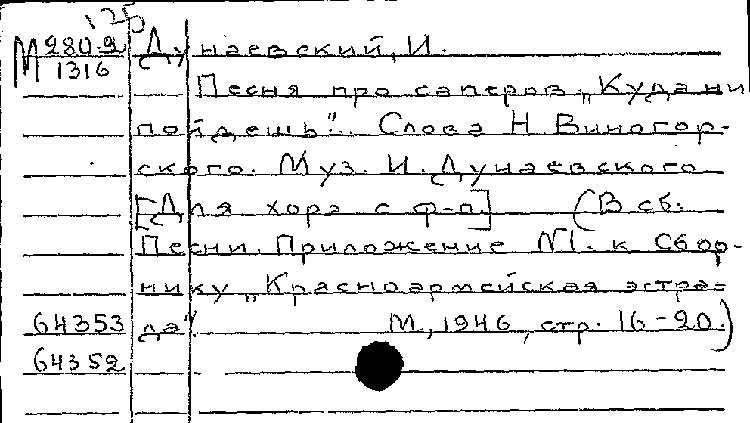 125
М 280-2 Дунаевский, И.
1316
Песня про саперов „Куда ни
пойдешь". Слова Н. Виногор-
ского. Муз. И. Дунаевского
[Для хора с ф-п.] (В сб.
Песни. Приложение №1. к Сбор-
нику „Красноармейская эстра-
64353 да". М., 1946, стр. 16-20.)
64352